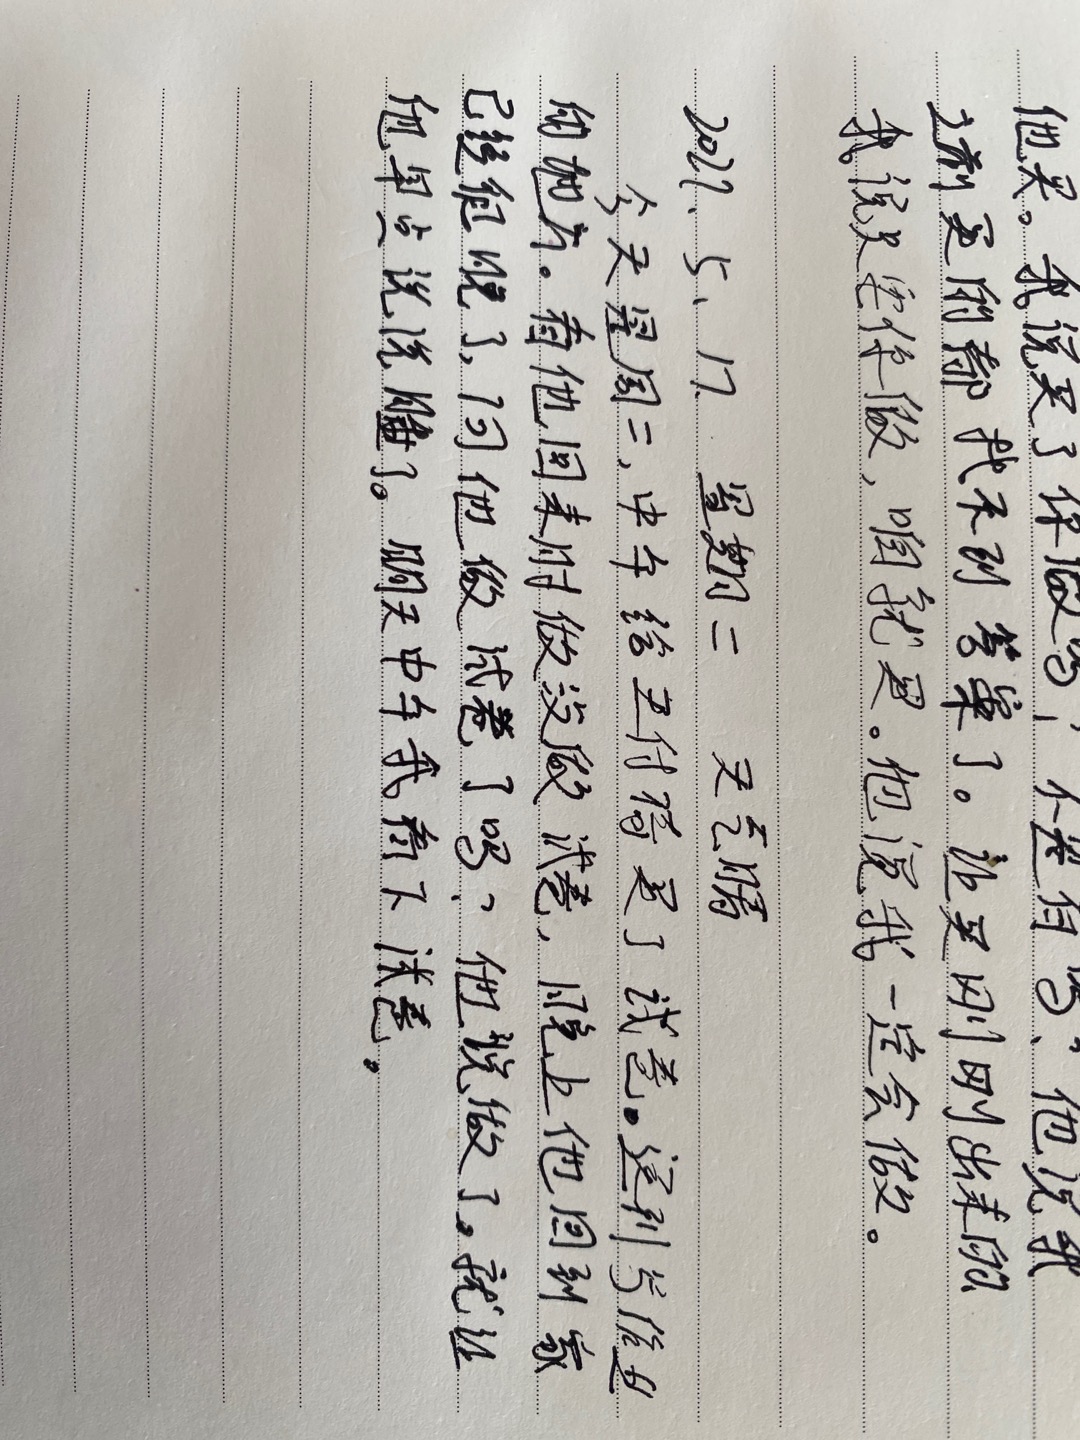 他买。我说买了你做吗，不是有吗，他说我
之前买的都找不到答案了。让买刚刚出来的
我说只要你做，咱就买。他说我一定会做。
2022、5、17 星期二 天气晴
今天是周二，中午给王付 买了试卷。送到
的地方。看他回来时做没做试卷，晚上他回到家
已经很晚了，问他做试卷了吗？他说做了。就让
他早点说说睡了。明天中午我看下试卷。